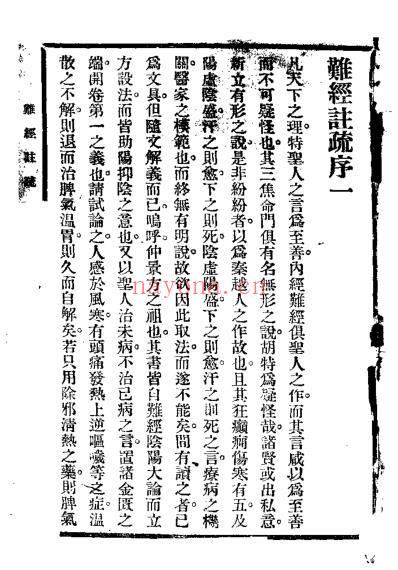 難經註疏序一
凡天下之理特聖人之言爲至善內經難經俱聖人之作而其言咸以爲至善
而不可疑怪也其三焦命門俱有名無形之說胡特爲疑怪哉諸賢或出私意
新立有形之說是非紛紛者以爲秦越人之作故也且其狂癲癎傷寒有五及
陽虛陰盛汗之則愈下之則死陰虛陽盛下之則愈汗之則死之言療病之機
關醫家之模範也而終無有明說故欲因此取法而遂不能矣間有讀之者已
爲文具但隨文解義而已嗚呼仲景醫之祖也其書皆自難經陰陽大論而立
方設法而皆助陽抑陰之意也又以聖人治未病不治已病之言置諸金匱之
端開卷第一之義也請試論之人感於風寒有頭痛發熱上逆嘔噦等之症溫
散之不解則退而治脾氣溫胃則久而自解矣若只用除邪淸熱之藥則脾氣
難經註疏
nayona.cn